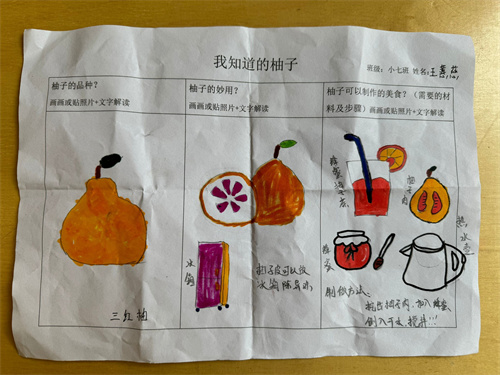 我知道的柚子
班级：小七班 姓名：王
柚子的品种？
画画或贴照片+文字解读
柚子的妙用？
画画或贴照片+文字解读
柚子可以制作的美食？（需要的材
料及步骤）画画或贴照片+文字解读
三红柚
冰箱
柚子皮可以放
冰箱除异味
蜂蜜柚子茶
柚子肉
蜂蜜
热水壶
制做方法：
挖出柚子肉，加入蜂蜜，
倒入开水，搅拌!!!